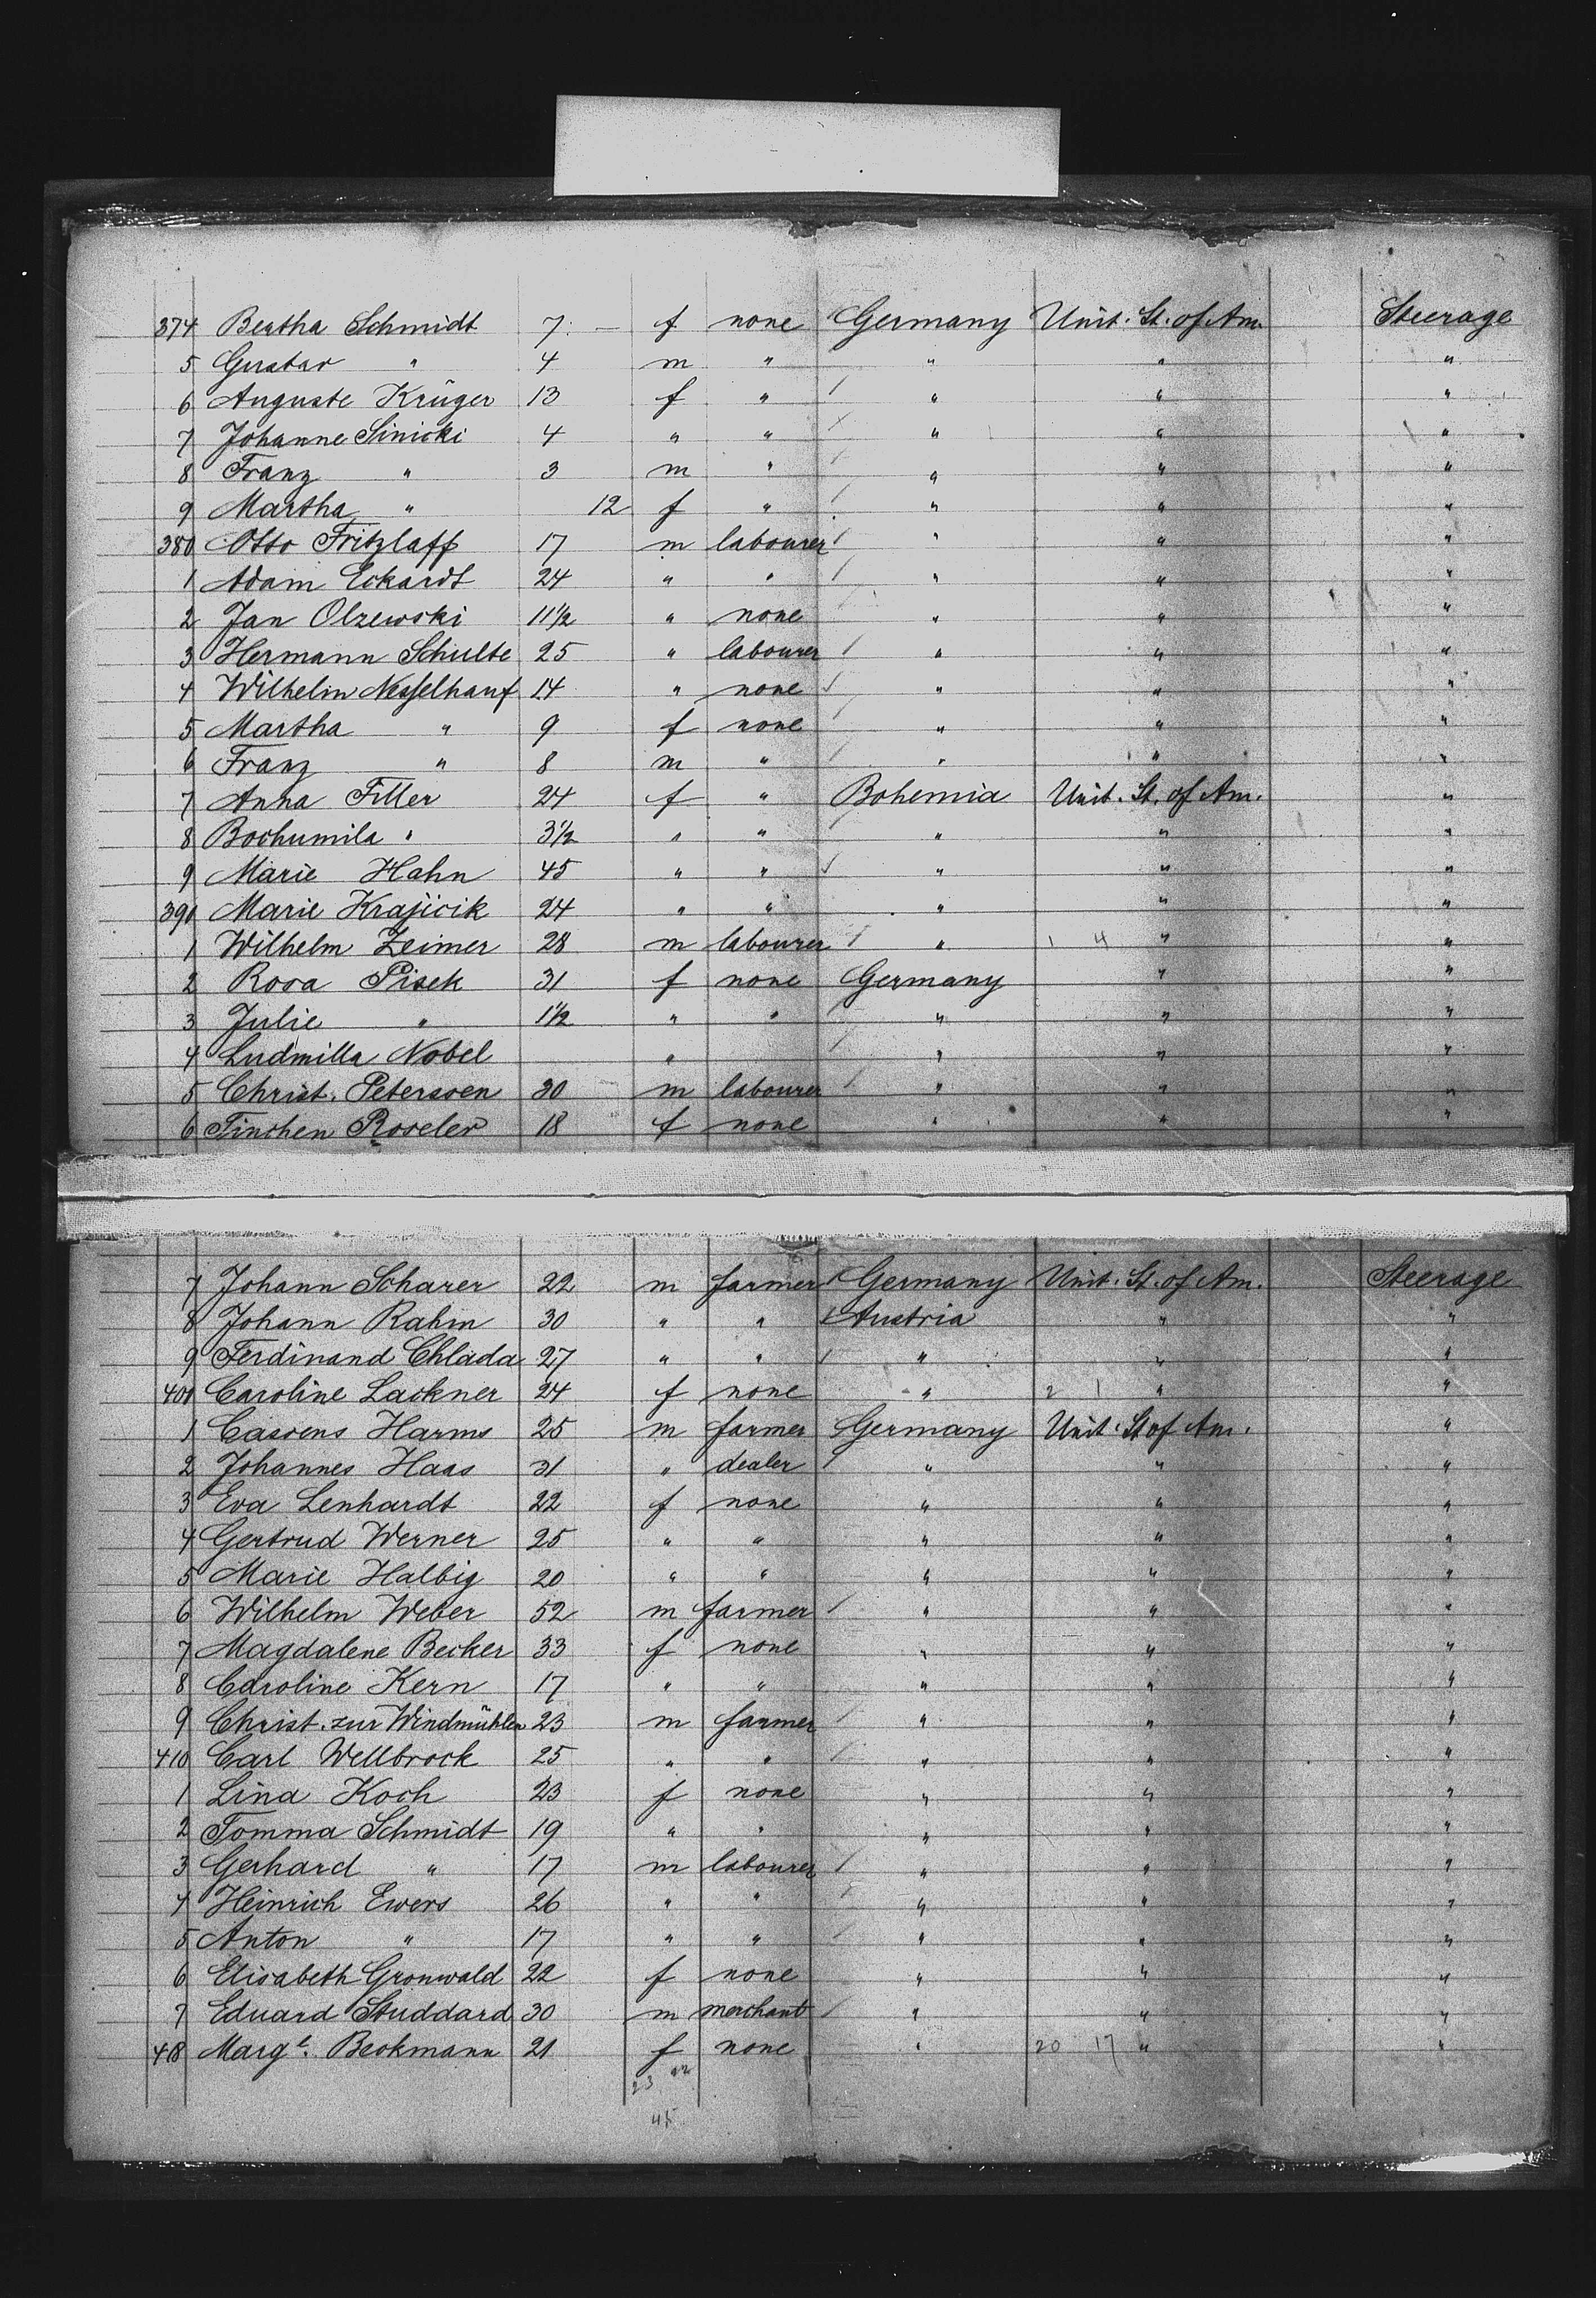 374 Bertha Schmidt 7 — f none Germany Unit. St. of Am. Steerage
5 Gustav " 4 m " " " "
6 Auguste Krüger 13 f " " " "
7 Johanne Sinicki 4 " " " " "
8 Franz " 3 m " " " "
9 Martha " 12 f " " " "
380 Otto Fritzlaff 17 m labourer " " "
1 Adam Eckardt 24 " " " " "
2 Jan Olzewski 11½ " none " " "
3 Hermann Schulte 25 " labourer " " "
4 Wilhelm Nesselhauf 14 " none " " "
5 Martha " 9 f none " " "
6 Franz " 8 m " " " "
7 Anna Filler 24 f " Bohemia Unit. St. of Am. "
8 Bochumila " 3½ " " " " "
9 Marie Hahn 45 " " " " "
390 Marie Krajicik 24 " " " " "
1 Wilhelm Zeimer 28 m labourer " 1 4 " "
2 Rosa Pisek 31 f none Germany " "
3 Julie " 1½ " " " " "
4 Ludmilla Nobel " " " "
5 Christ. Peterssen 30 m labourer " " "
6 Tinchen Roseler 18 f none " " "
7 Johann Scharer 22 m farmer Germany Unit. St. of Am. Steerage
8 Johann Rahm 30 " " Austria " "
9 Ferdinand Chlada 27 " " " " "
400 Caroline Lackner 24 f none " 2 1 " "
1 Cassens Harms 25 m farmer Germany Unit. St of Am. "
2 Johannes Haas 31 " dealer " " "
3 Eva Lenhardt 22 f none " " "
4 Gertrud Werner 25 " " " " "
5 Marie Halbig 20 " " " " "
6 Wilhelm Weber 52 m farmer " " "
7 Magdalene Becker 33 f none " " "
8 Caroline Kern 17 " " " " "
9 Christ. zur Windmühlen 23 m farmer " " "
410 Carl Wellbrock 25 " " " " "
1 Lina Koch 23 f none " " "
2 Tomma Schmidt 19 " " " " "
3 Gerhard " 17 m labourer " " "
4 Heinrich Ewers 26 " " " " "
5 Anton " 17 " " " " "
6 Elisabeth Gronwald 22 f none " " "
7 Eduard Studdard 30 m merchant " " "
418 Margt. Beckmann 21 f none " 20 17 " "
23 22
45